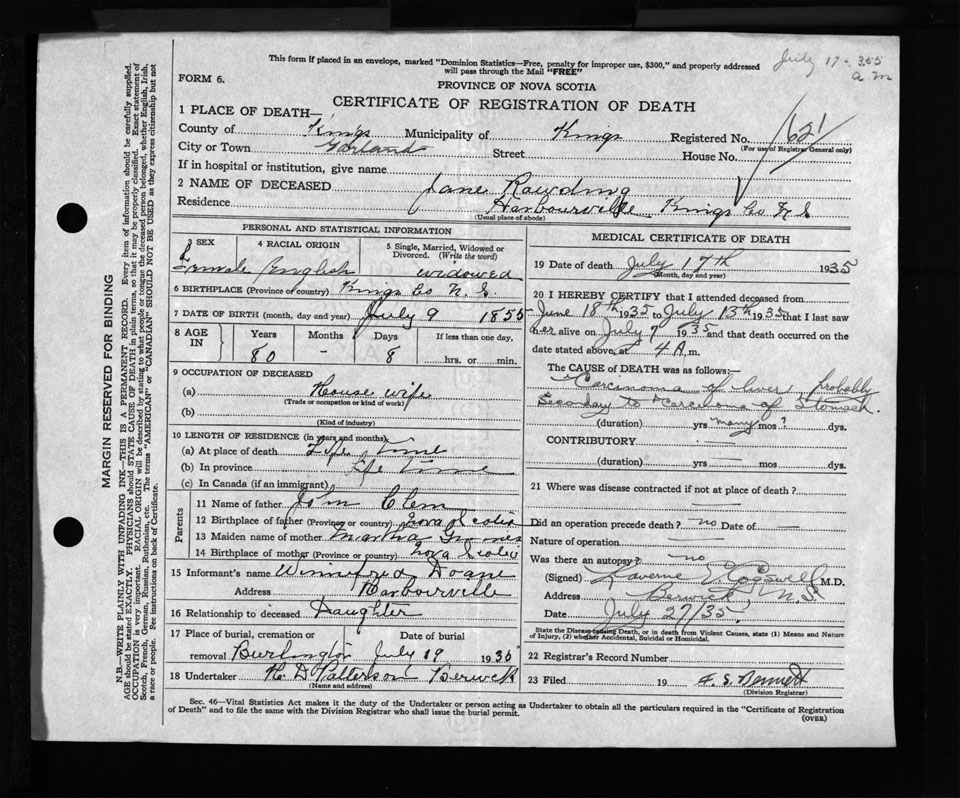 July 17 - 355
a m
This form if placed in an envelope, marked "Dominion Statistics—Free, penalty for improper use, $300," and properly addressed
will pass through the Mail "FREE"
FORM 6.
PROVINCE OF NOVA SCOTIA
CERTIFICATE OF REGISTRATION OF DEATH
1 PLACE OF DEATH—
County of Kings Municipality of Kings Registered No. 621
(For use of Registrar General only)
City or Town Garland Street House No.
If in hospital or institution, give name
2 NAME OF DECEASED Jane Rawding
Residence Harbourville Kings Co N S
(Usual place of abode)
PERSONAL AND STATISTICAL INFORMATION
3 SEX 4 RACIAL ORIGIN 5 Single, Married, Widowed or
Divorced. (Write the word)
Female English widowed
6 BIRTHPLACE (Province or country) Kings Co N. S.
7 DATE OF BIRTH (month, day and year) July 9 1855
8 AGE IN Years Months Days If less than one day,
80 - 8 hrs. or min.
9 OCCUPATION OF DECEASED
(a) House wife
(Trade or occupation or kind of work)
(b)
(Kind of industry)
10 LENGTH OF RESIDENCE (in years and months)
(a) At place of death Life time
(b) In province Life time
(c) In Canada (if an immigrant)
Parents
11 Name of father John Clem
12 Birthplace of father (Province or country) Nova Scotia
13 Maiden name of mother Martha
14 Birthplace of mother (Province or country) Nova Scotia
15 Informant's name Winnifred Doane
Address Harbourville
16 Relationship to deceased Daughter
17 Place of burial, cremation or Date of burial
removal Burlington July 19 1935
18 Undertaker H. D Patterson Berwick
(Name and address)
MEDICAL CERTIFICATE OF DEATH
19 Date of death July 17th 1935
(Month, day and year)
20 I HEREBY CERTIFY that I attended deceased from
June 18th 1935 to July 13th 1935 that I last saw
her alive on July 7 1935 and that death occurred on the
date stated above, at 4 A. m.
The CAUSE of DEATH was as follows:—
Carcinoma of liver, probably
Secondary to Carcinoma of Stomach.
(duration) yrs many mos ? dys.
CONTRIBUTORY
(duration) yrs mos dys.
21 Where was disease contracted if not at place of death ?
Did an operation precede death ? no Date of —
Nature of operation —
Was there an autopsy ? no
(Signed) Laverne Cogswell M.D.
Address Berwick N.S.
Date July 27/35
State the Disease causing Death, or in death from Violent Causes, state (1) Means and Nature
of Injury, (2) whether Accidental, Suicidal or Homicidal.
22 Registrar's Record Number
23 Filed 19 F. S. Bennett
(Division Registrar)
Sec. 46—Vital Statistics Act makes it the duty of the Undertaker or person acting as Undertaker to obtain all the particulars required in the "Certificate of Registration
of Death" and to file the same with the Division Registrar who shall issue the burial permit.
(OVER)
MARGIN RESERVED FOR BINDING
N.B.—WRITE PLAINLY WITH UNFADING INK—THIS IS A PERMANENT RECORD. Every item of information should be carefully supplied.
AGE should be stated EXACTLY. PHYSICIANS should STATE CAUSE OF DEATH in plain terms, so that it may be properly classified. Exact statement of
OCCUPATION is very important. RACIAL ORIGIN will be described by stating to what people or tongue the deceased person belonged, whether English, Irish,
Scotch, French, German, Russian, Ruthenian, etc. The terms "AMERICAN" or "CANADIAN" SHOULD NOT BE USED as they express citizenship but not
a race or people. See instructions on back of Certificate.